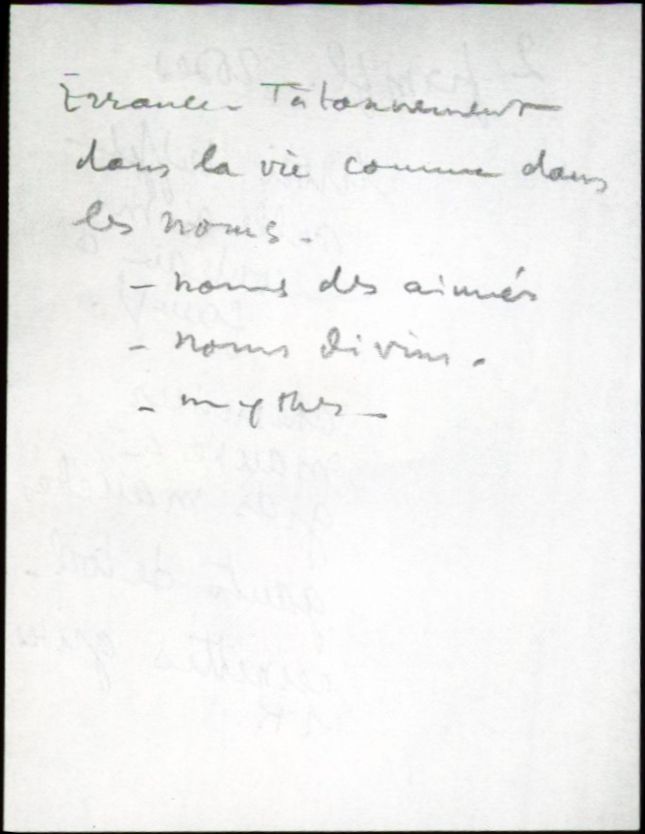 Errance - Tatonnement
dans la vie comme dans
les noms.
- noms des aimés
- noms divins.
- mythes -